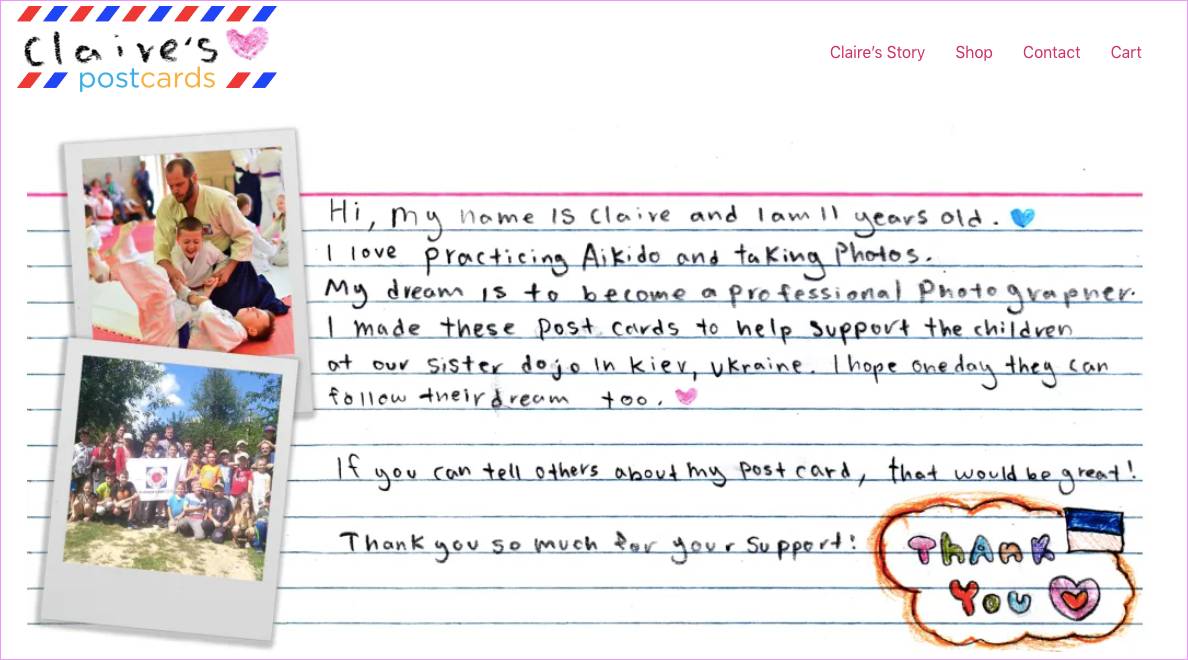 Claire's
postcards
Claire's Story Shop Contact Cart
Hi, my name is Claire and I am 11 years old.
I love practicing Aikido and taking Photos.
My dream is to become a professional Photographer.
I made these post cards to help support the children
at our sister dojo in kiev, ukraine. I hope one day they can
follow their dream too.
If you can tell others about my post card, that would be great!
Thank you so much for your support!
Thank
You